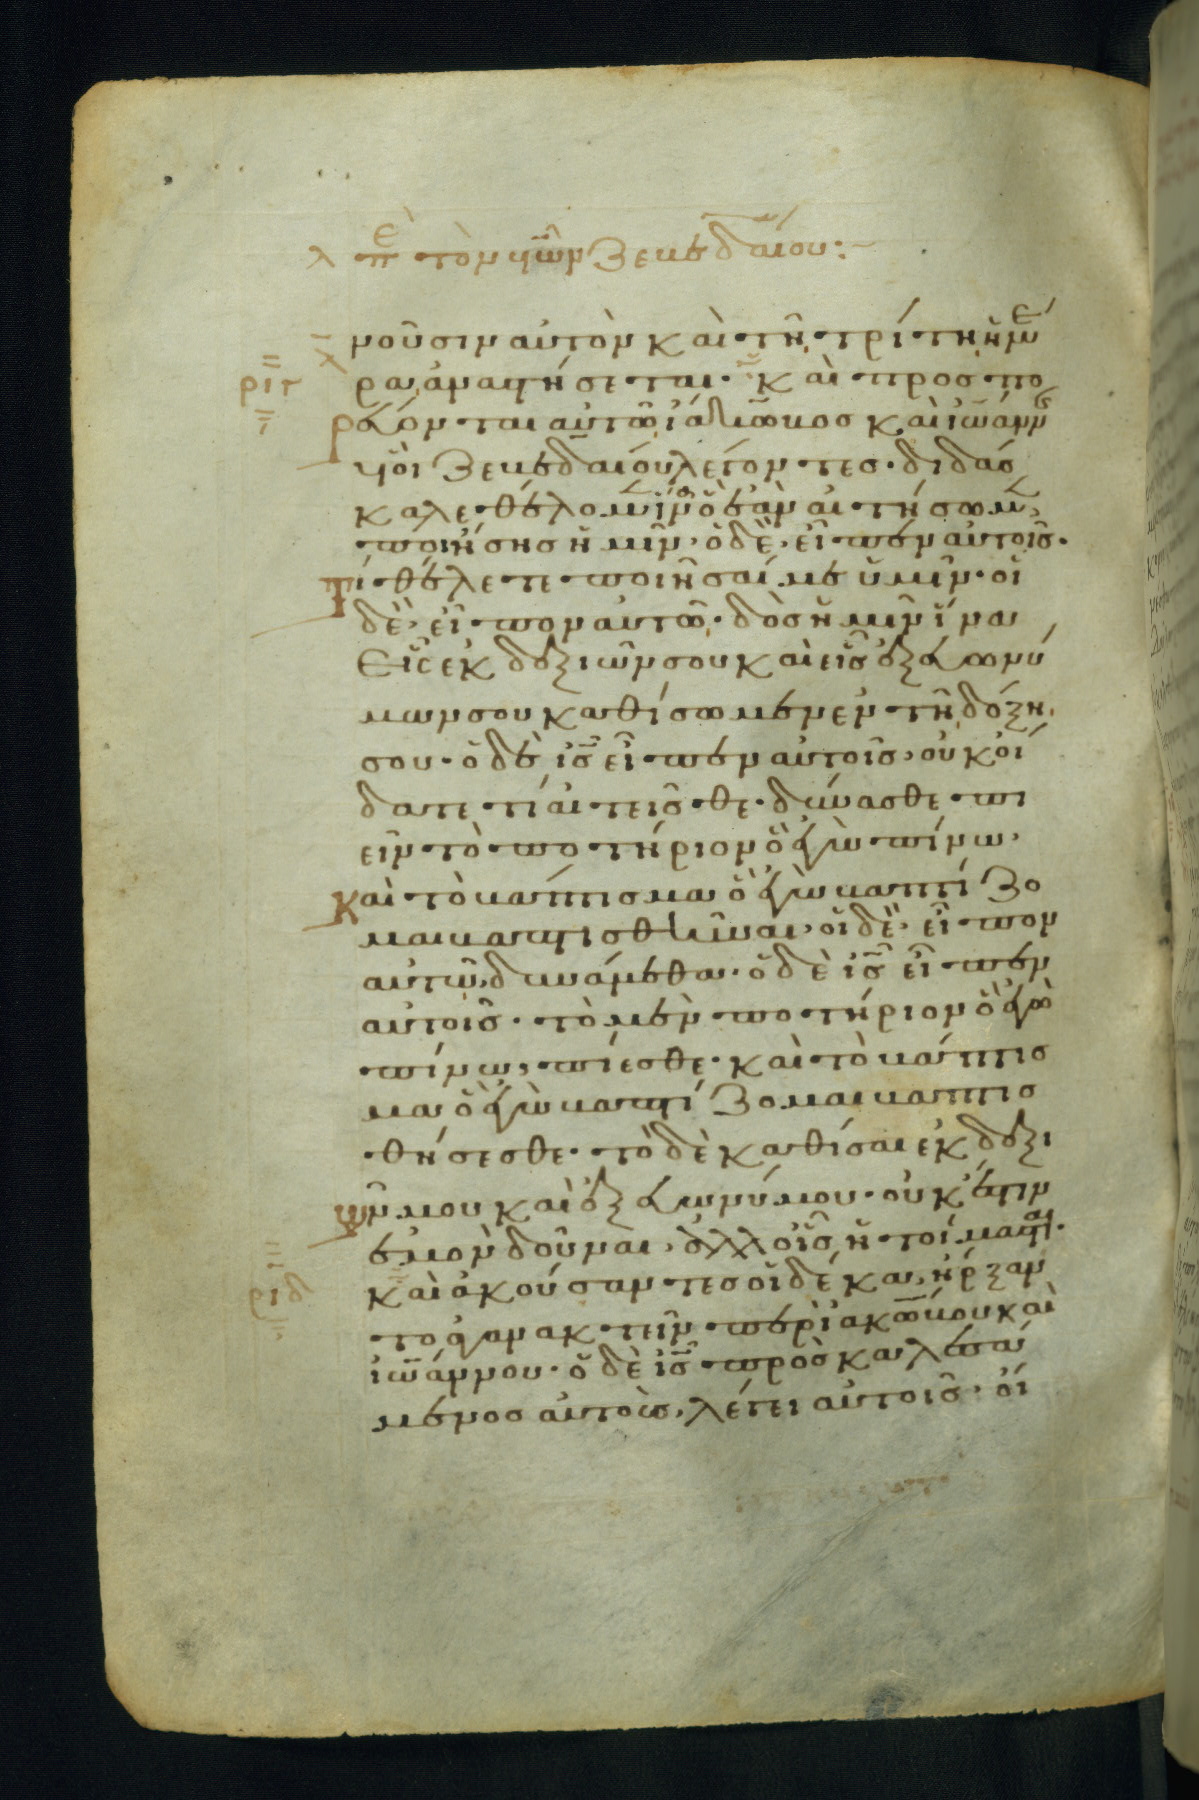 λ πε τῶν υἱῶν Ζεβεδαίου:
νοῦσιν αὐτὸν καὶ τῆ τρίτη ἡμέ
ριγ ρα ἀναστήσεται. καὶ προσπο
ρεύονται αὐτῶ ἰάκωβος καὶ ἰωάννης
υἱοὶ Ζεβεδαίου λέγοντες. διδάσ
καλε θέλομεν ἵνα ὃ ἐὰν αἰτήσωμεν
ποιήσης ἡμῖν. ὁ δὲ εἶπεν αὐτοῖς.
Τί θέλετε ποιῆσαί με ὑμῖν. οἱ
δὲ εἶπον αὐτῶ. δὸς ἡμῖν ἵνα
εἷς ἐκ δεξιῶν σου καὶ εἷς ἐξ εὐωνύ
μων σου καθίσωμεν ἐν τῆ δόξη
σου. ὁ δὲ ις εἶπεν αὐτοῖς, οὐκ οἴ
δατε τί αἰτεῖσθε. δύνασθε πι
εῖν τὸ ποτήριον ὃ ἐγὼ πίνω,
Καὶ τὸ βάπτισμα ὃ ἐγὼ βαπτίζο
μαι βαπτισθῆναι. οἱ δὲ εἶπον
αὐτῶ, δυνάμεθα. ὁ δὲ ις εἶπεν
αὐτοῖς. τὸ μὲν ποτήριον ὃ ἐγὼ
πίνω, πίεσθε. καὶ τὸ βάπτισ
μα ὃ ἐγὼ βαπτίζομαι βαπτισ
θήσεσθε. τὸ δὲ καθίσαι ἐκ δεξι
ῶν μου καὶ ἐξ εὐωνύμου. οὐκ ἔστιν
ἐμὸν δοῦναι, ἀλλ οἷς ἡτοίμασται.
ριδ καὶ ἀκούσαντες οἱ δέκα, ἤρξαν
το ἀγανακτεῖν περὶ ἰακώβου καὶ
ἰωάννου. ὁ δὲ ις προσκαλεσά
μενος αὐτοὺς, λέγει αὐτοῖς. οἱ